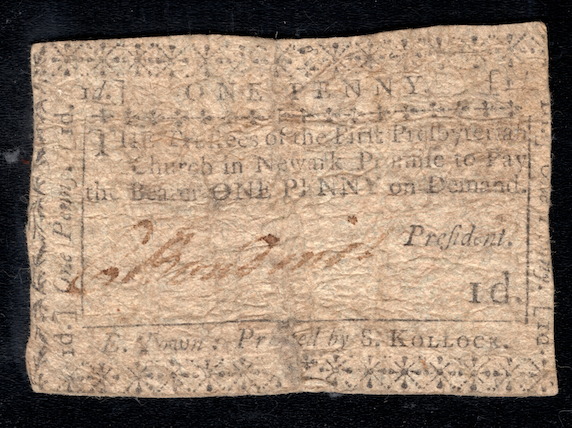 1d.] ONE PENNY. [1
THE Trustees of the Firſt Preſbyterian
Church in Newark Promiſe to Pay
the Bearer ONE PENNY on Demand.
Preſident.
1d.
E. Town: Printed by S. KOLLOCK.
1d.] One Penny. [1d.
One Penny. [1d.